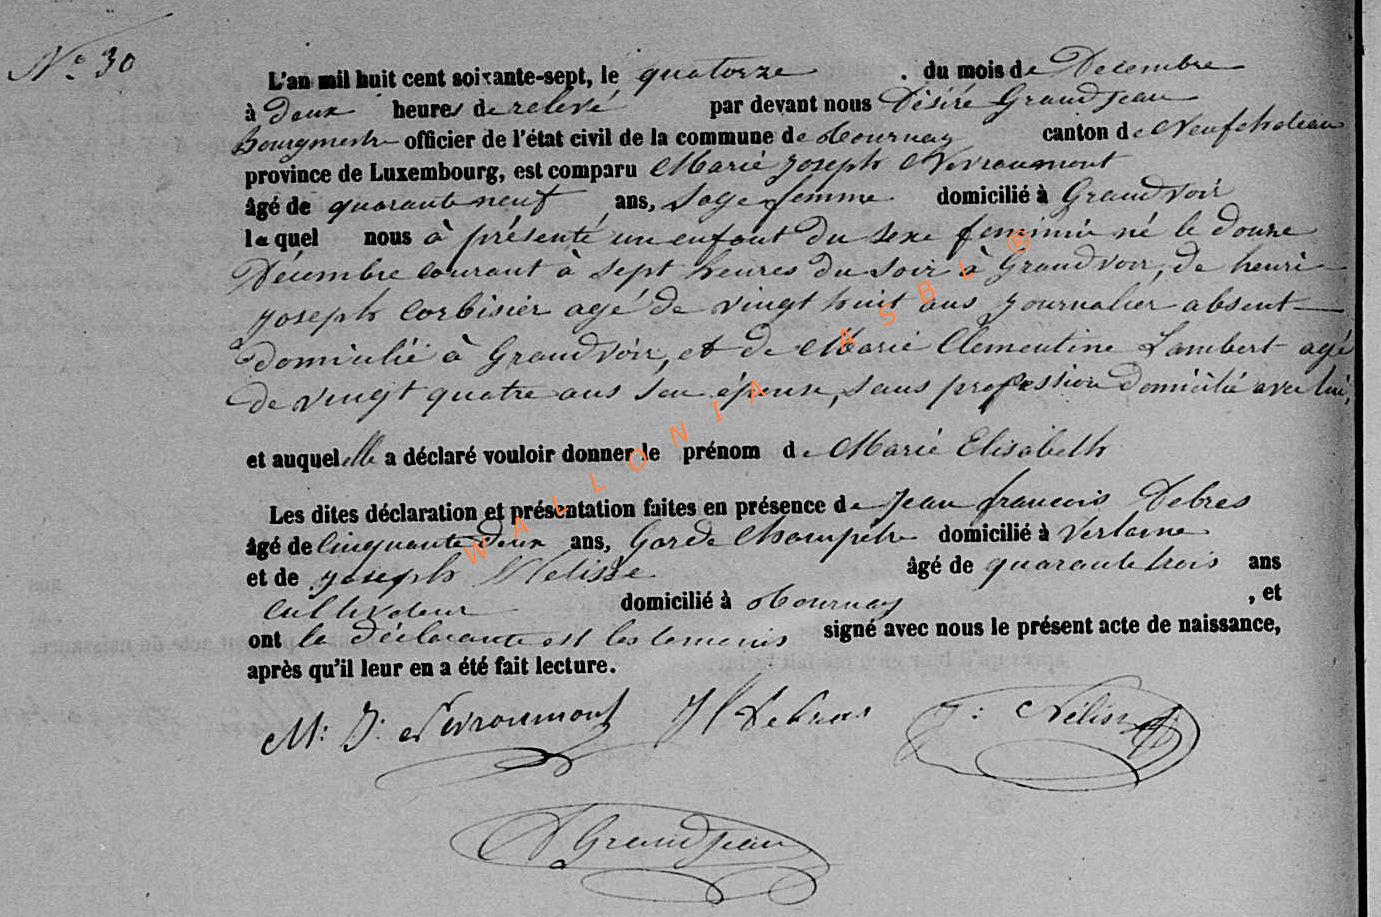 N° 30
L'an mil huit cent soixante-sept, le quatorze . du mois de Decembre
à deux heures de relevé par devant nous Désiré Grandjean
Bourgmestre officier de l'état civil de la commune de Tournay canton de Neufchateau
province de Luxembourg, est comparu Marie Joseph Nevraumont
âgé de quarante neuf ans, Sage femme domicilié à Grandvoir
laquel nous à présenté un enfant du sexe feminin né le douze
Décembre courant à sept heures du soir à Grandvoir, de henri
Joseph Corbisier agé de vingt huit ans Journalier absent
domicilié à Grandvoir, et de Marie Clementine Lambert agé
de vingt quatre ans son épouse, sans profession domicilié avec lui,
et auquel elle a déclaré vouloir donner le prénom de Marie Elisabeth
Les dites déclaration et présentation faites en présence de Jean francois Debras
âgé de Cinquante deux ans, Garde Champetre domicilié à Verlaine
et de Joseph Nelisse âgé de quarante trois ans
Cultivateur domicilié à Tournay , et
ont la déclarante est les temoins signé avec nous le présent acte de naissance,
après qu'il leur en a été fait lecture.
M: J: Nevraumont J f Debras J: Nélisse
D Grandjean
WALLONIA ASBL ®